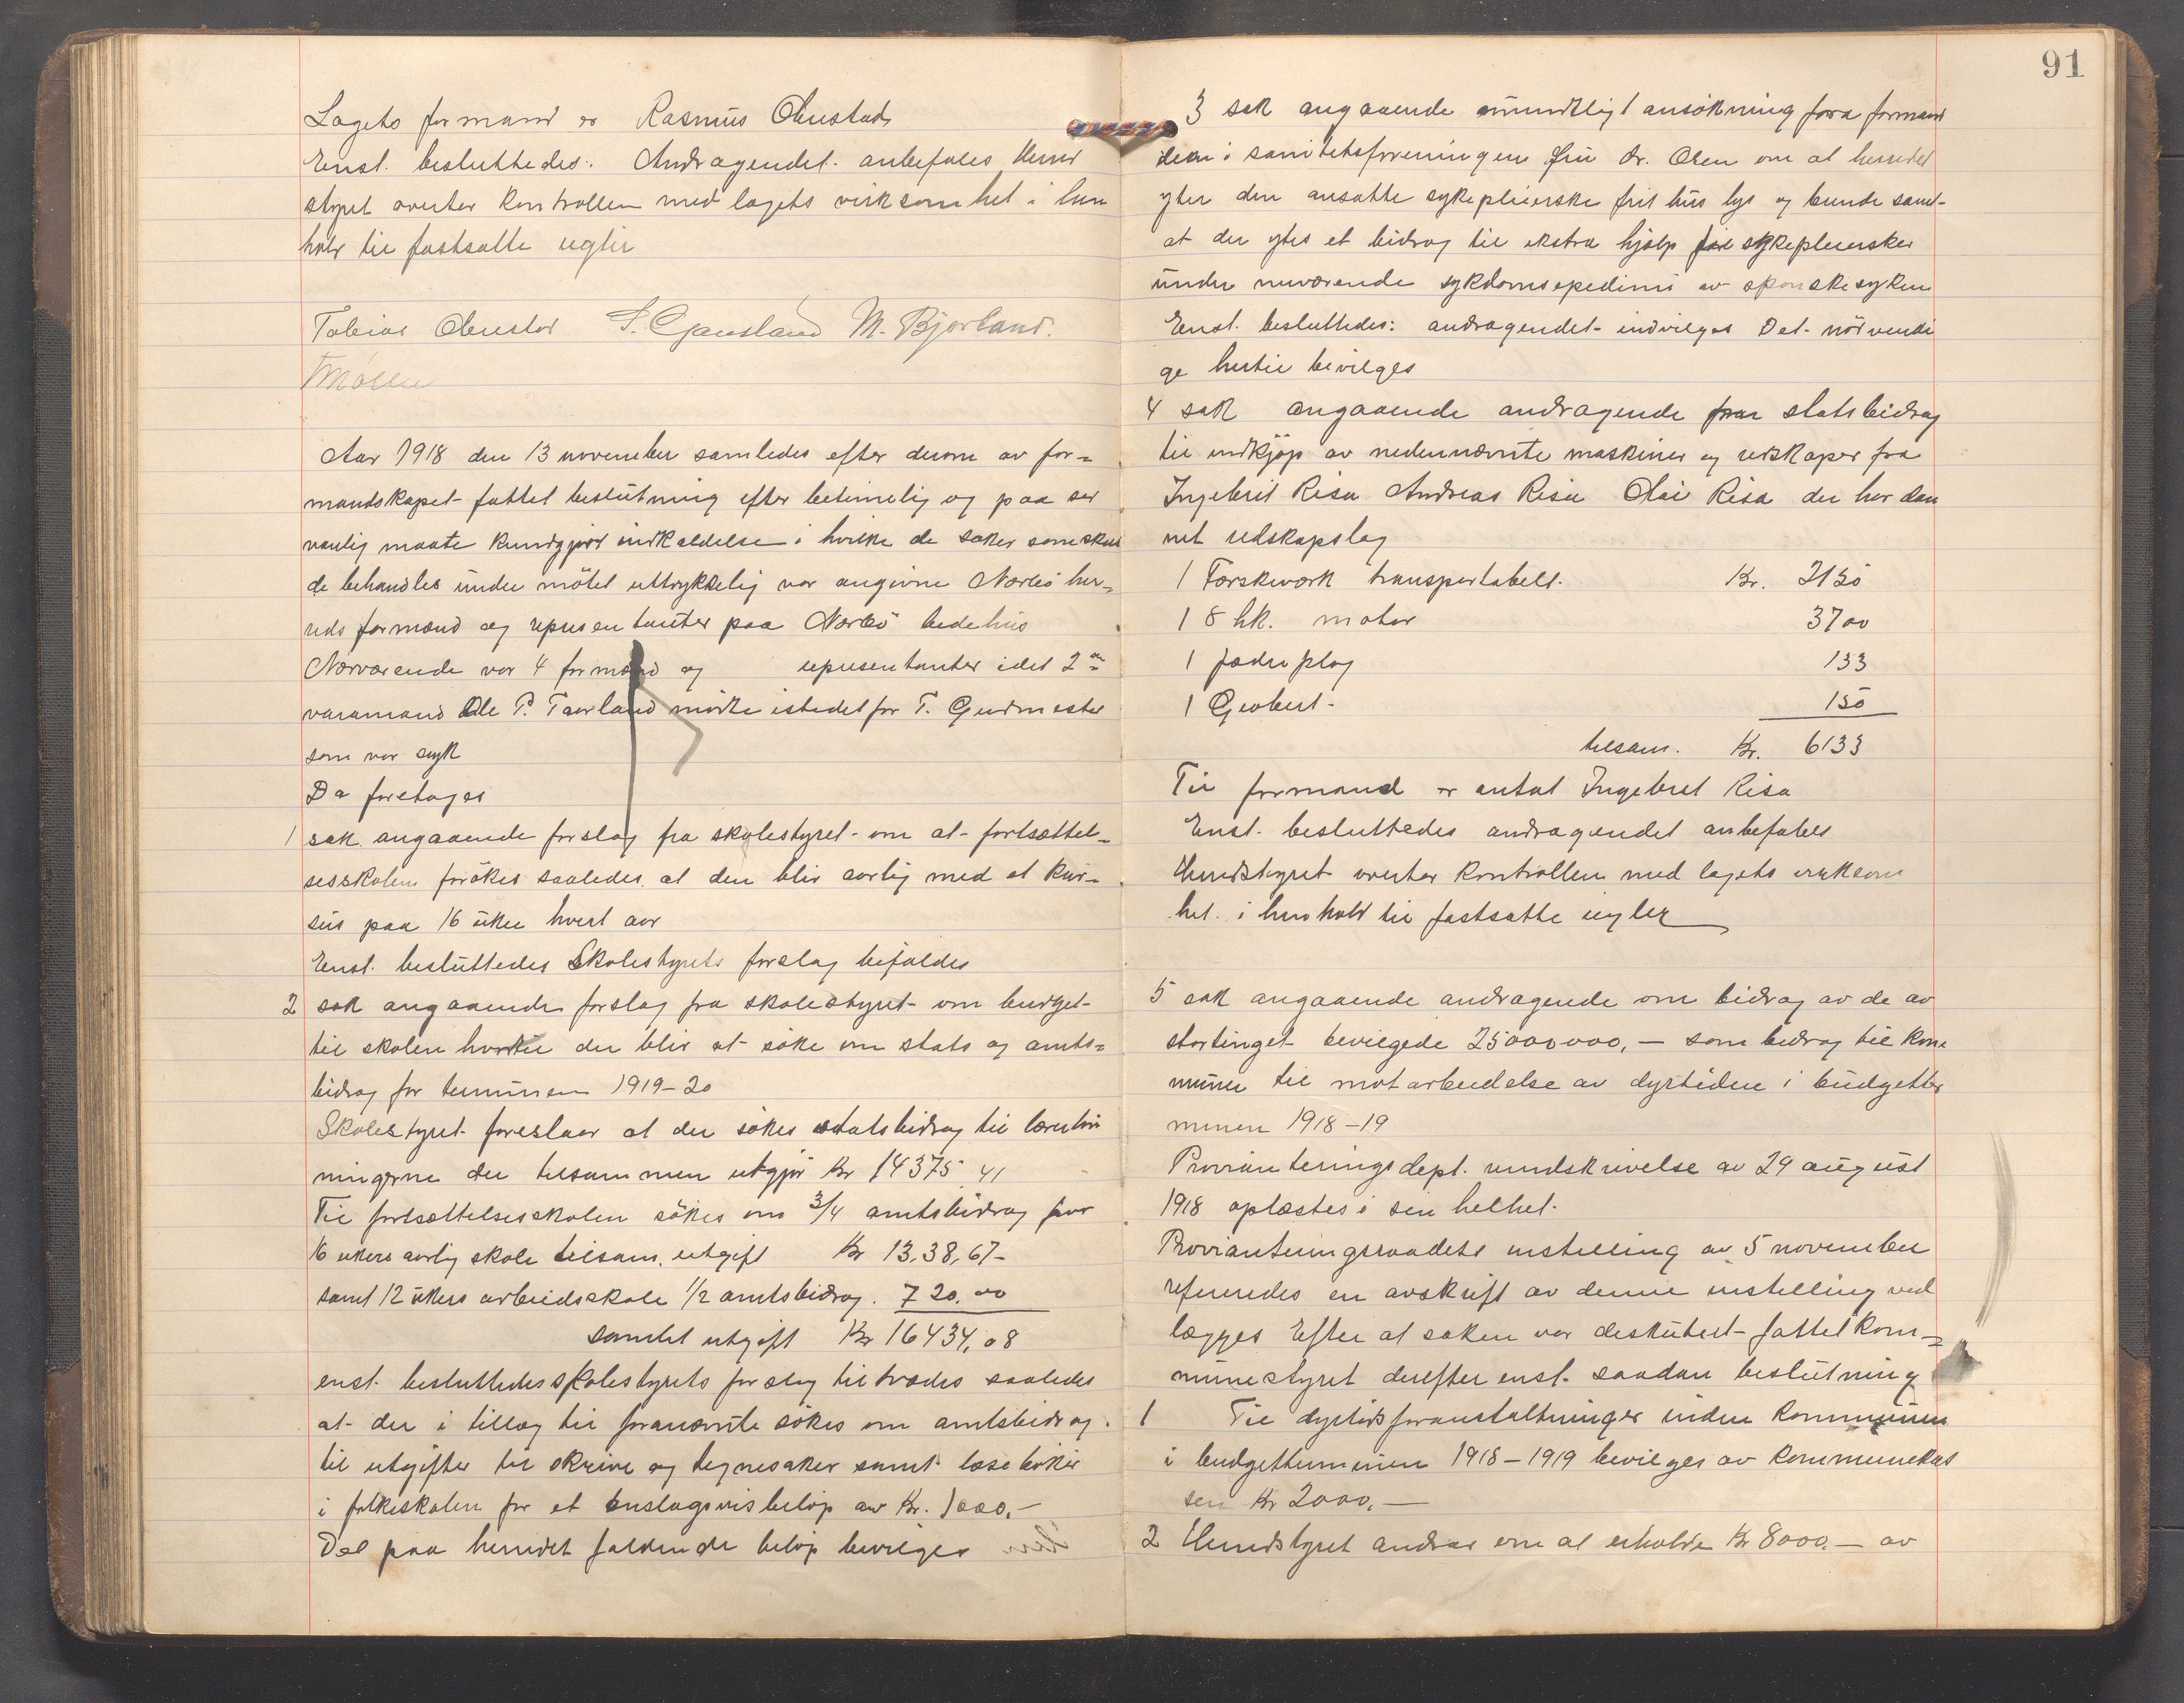 Lagets formand er Rasmus Obrestad
Enst. besluttedes: Andragendet anbefales Herred
styret overtar kontrollen med lagets virksomhet i hen
hold til fastsatte regler
Tobias Obrestad M. Bjorland.
Aar 1918 den 13 november samledes efter derom av for=
mandskapet fattet beslutning efter betimelig og paa sed
vanlig maate kundgjort indkaldelse i hvilke de saker som skul
de behandles under møtet uttrykkelig var angivne Nærbø her=
reds formænd og representanter paa Nærbø bedehus
Nærværende var 4 formænd og representanter idet 2en
varamand Ole P. Taarland møtte istedet for T. Gudmestad
som var syk
Da foretages
1 sak angaaende forslag fra skolestyret om at fortsættel=
sesskolen forøkes saaledes at den blir aarlig med et kur=
sus paa 16 uker hvert aar
Enst. besluttedes Skolestyrets forslag bifaldes
2 sak angaaende forslag fra skolestyret om budget
til skolen hvortil der blir at søke om stats og amts=
bidrag for terminen 1919-20
Skolestyret foreslaar at der søkes statsbidrag til lærerløn
ningerne der tilsammen utgjør Kr 14375.41
Til fortsættelsesskolen søkes om 3/4 amtsbidrag for
16 ukers aarlig skole tilsam. utgift Kr 13,38,67-
samt 12 ukers arbeidsskole 1/2 amtsbidrag. 720.00
samlet utgift Kr 16434,08
enst. besluttedes skolestyrets forslag tiltrædes saaledes
at der i tillæg til forannævnte søkes om amtsbidrag.
til utgifter til skrive og tegnesaker samt læsebøker
i folkeskolen for et anslagsvis beløp av Kr. 1000.-
Det paa herredet faldende beløp bevilges
91
3 sak angaaende mundtligt ansøkning fra formand
den i sanitetsforeningen fru dr. Olsen om at herredet
yter den ansatte sykepleierske frit hus lys og brende samt
at der ytes et bidrag til ekstra hjælp for sykepleiersker
under nuværende sykdomsepedimi av spanskesyken
Enst. besluttedes: andragendet indvilges Det nødvendi
ge hertil bevilges
4 sak angaaende andragende paa statsbidrag
til indkjøp av nedennævnte maskiner og redskaper fra
Ingebrit Risa Andreas Risa Olai Risa der har dan
net redskapslag
1 Tærskeværk transportabelt. Kr. 2150
1 8 hk. motor 3700
1 fædreplog 133
1 150
tilsam. Kr. 6133
Til formand er antat Ingebret Risa
Enst. besluttedes andragendet anbefales
Herredstyret overtar kontrollen med lagets virksom
het i henhold til fastsatte regler
5 sak angaaende andragende om bidrag av de av
stortinget bevilgede 25000000,- som bidrag til kom
muner til motarbeidelse av dyrtiden i budgetter
minen 1918-19
Provianteringsdept. rundskrivelse av 29 august
1918 oplæstes i sin helhet.
Provianteringsraadets instilling av 5 november
refereredes en avskrift av denne instelling ved
lægges Efter at saken var deskutert fattet kom=
munestyret derefter enst. saadan beslutning
1 Til dyrtidsforanstaltninger inden kommunen
i budgetterminen 1918-1919 bevilges av kommunekas
sen Kr 2000,-
2 Herredstyret andrar om at erholde Kr 8000.- av